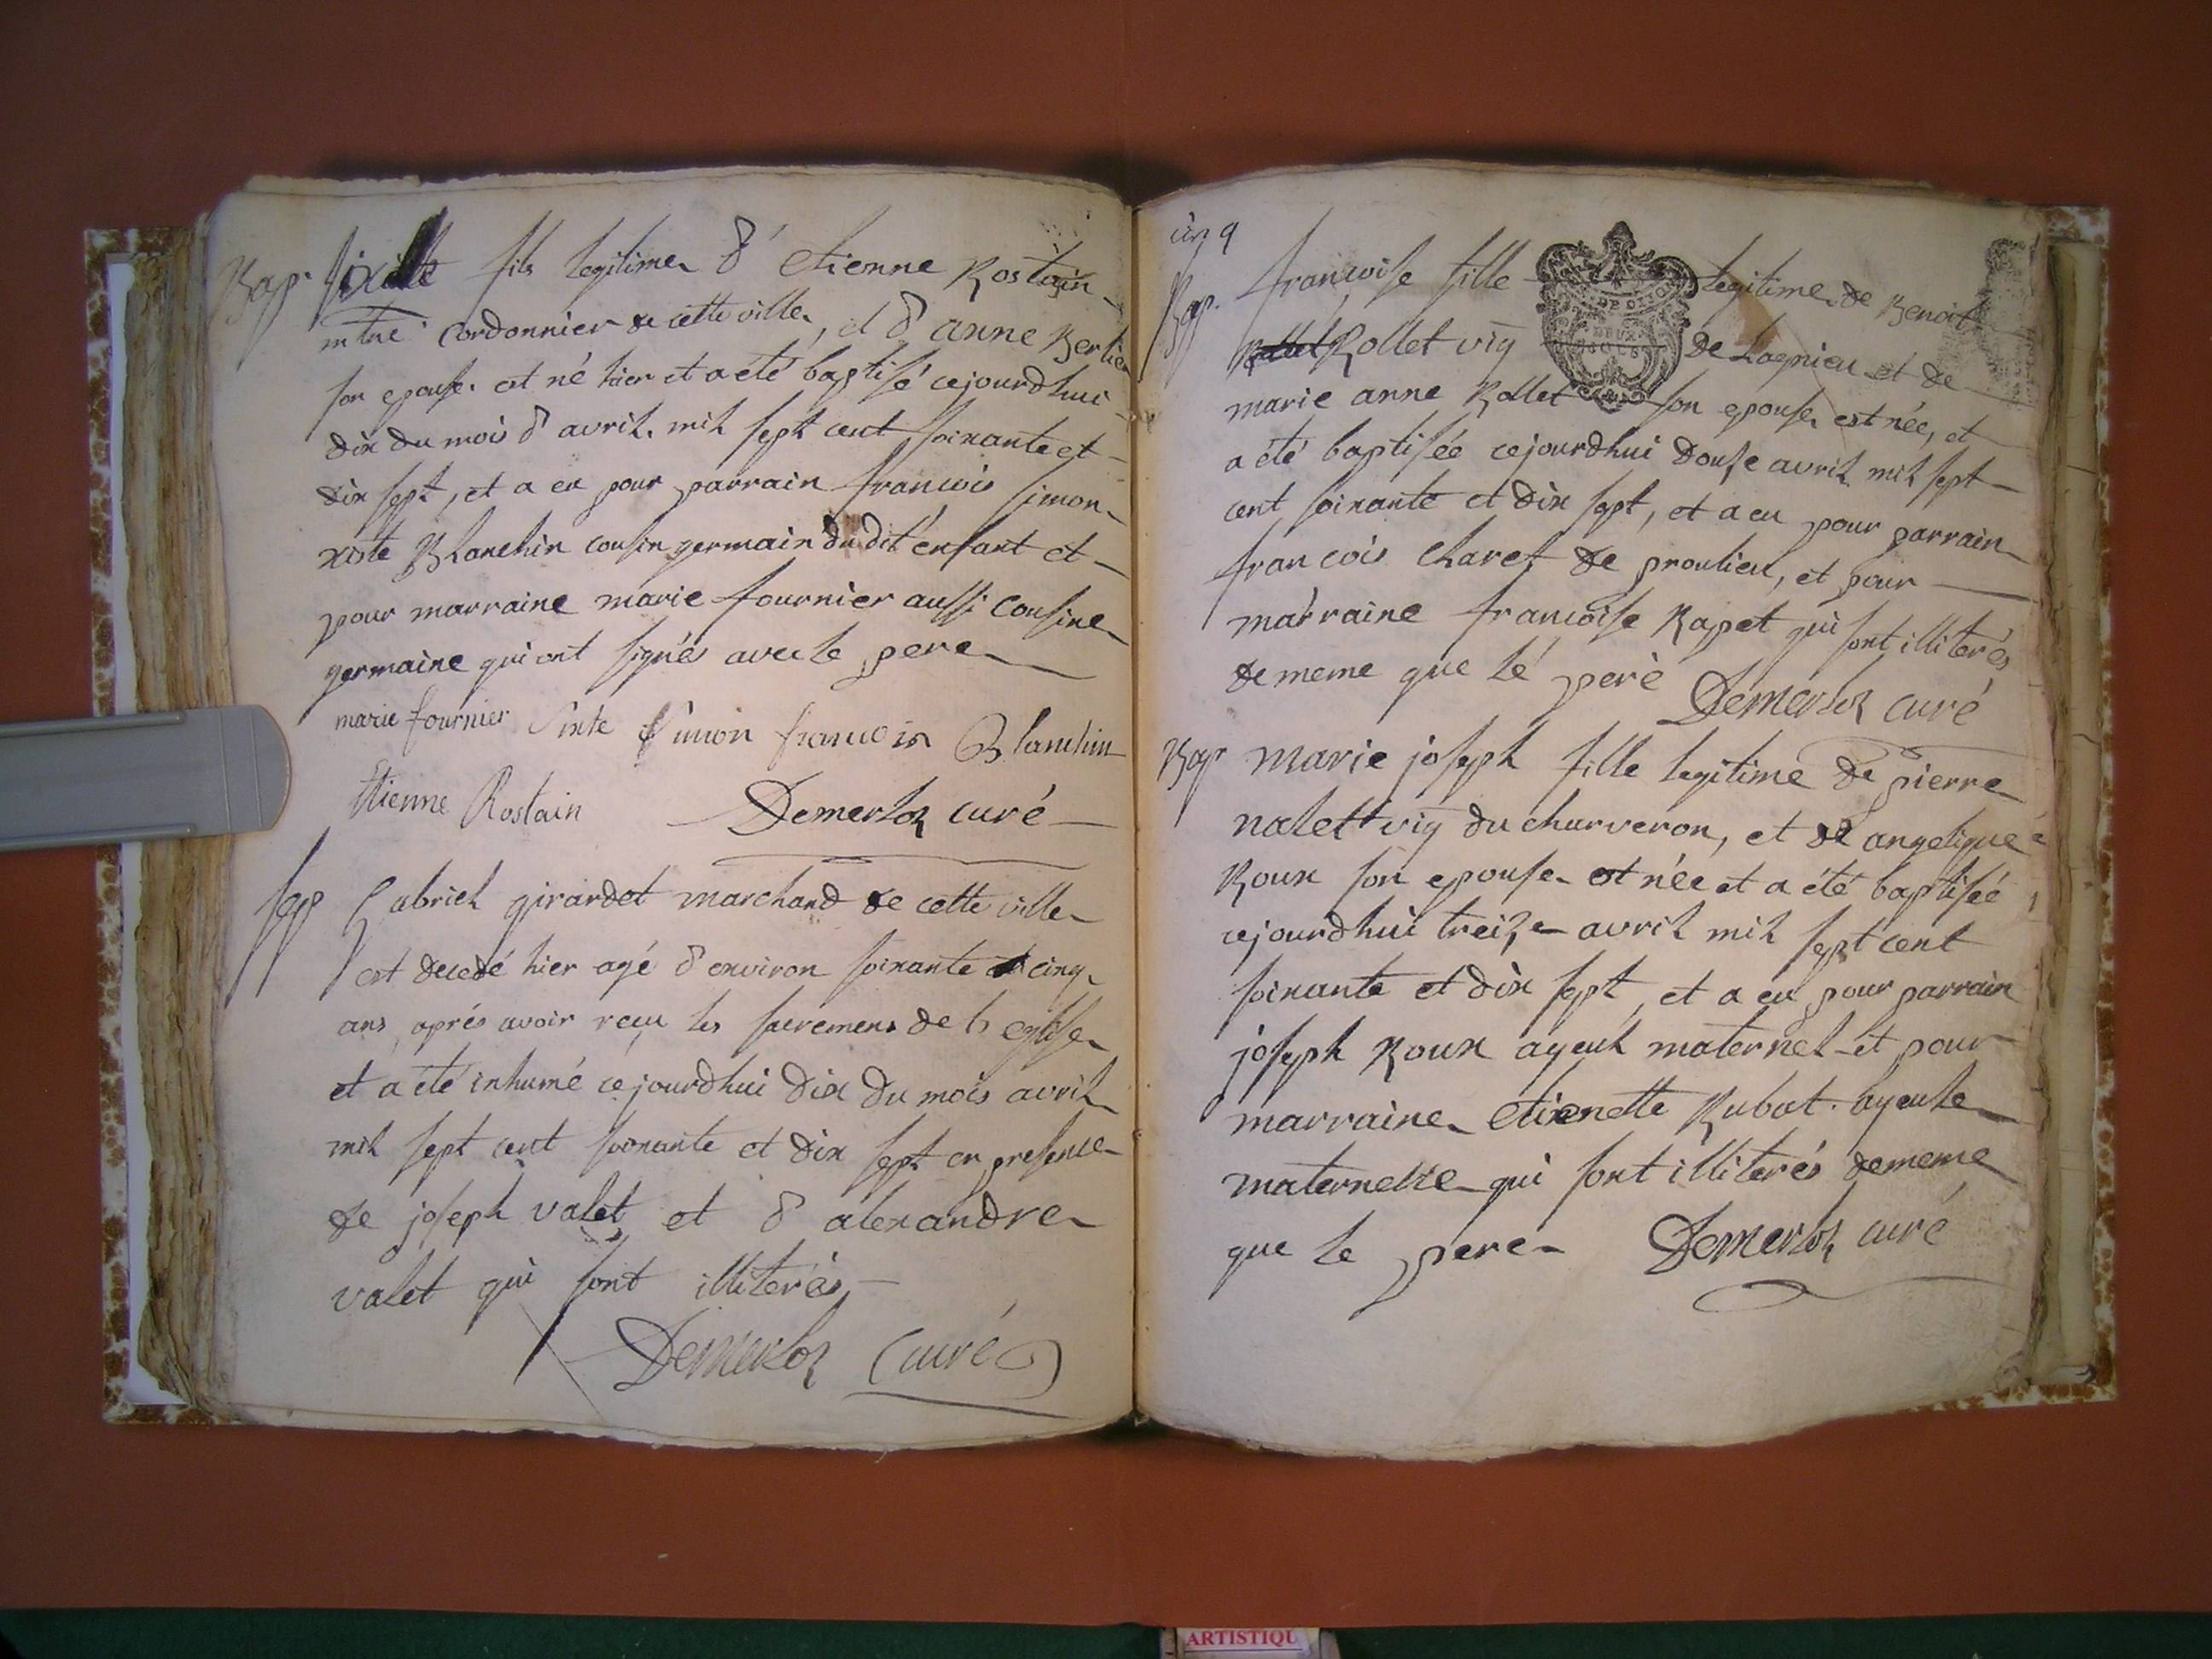 Bap. sixte fils legitime d' etienne Rostain
mtre cordonnier de cette ville, et d' anne Berlier
son epouse est né hier et a eté baptisé cejourdhui
dix du mois d' avril mil sept cent soixante et
dix sept, et a eu pour parrain francois simon
xiste Blanchin cousin germain du dit enfant et
pour marraine marie fournier aussi cousine
germaine qui ont signés avec le pere
marie fournier Sixte Simon francois Blanchin
Etienne Rostain Demerloz curé
Sep Gabriel girardet marchand de cette ville
est decedé hier agé d' environ soixante cinq
ans, aprés avoir reçu les sacremens de l' eglise
et a été inhumé cejourdhui dix du mois avril
mil sept cent soixante et dix sept en presence
de joseph valet et d' alexandre
valet qui sont illiterés
Demerloz curé
Bap. francoise fille legitime de Benoit
Rollet vig de Lagnieu et de
marie anne Rollet son epouse est née, et
a été baptisée cejourdhui douse avril mil sept
cent soixante et dix sept, et a eu pour parrain
francois charet de proulieu, et pour
marraine francoise Rapet qui sont illiterés
de meme que le pere Demerloz curé
Bap marie joseph fille legitime de pierre
nalett vig du charveron, et de angelique
Roux son epouse est née et a été baptisée
cejourdhui treize avril mil sept cent
soixante et dix sept, et a eu pour parrain
joseph Roux ayeul maternel et pour
marraine etienette Rubat ayeule
maternelle qui sont illiterés de meme
que le pere Demerloz curé
ARTISTIQU